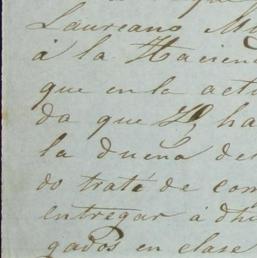 que
Laureano
á la Hacien
que en la actu
da que ha
la dueña des
do traté de com
entregar á dhi
gados en clase